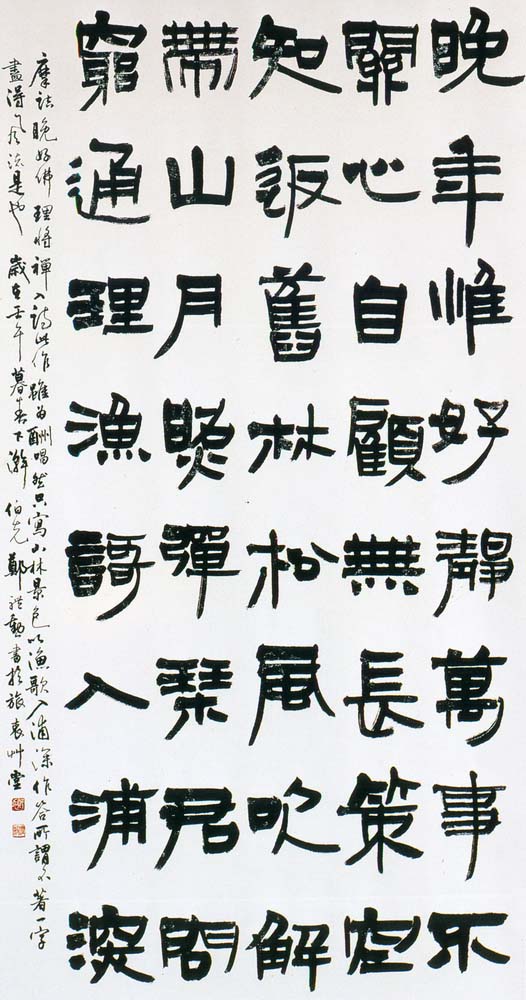 晚年惟好靜萬事不
關心自顧無長策空
知返舊林松風吹解
帶山月照彈琴君問
窮通理漁謌入浦深
摩詰晚好佛理將禪入詩此作雖為酬唱然只寫山林景色以漁歌入浦深作答所謂不著一字
盡得風流是也 歲在壬午暮春下澣 伯堯鄭禮勳書於旅袁艸堂